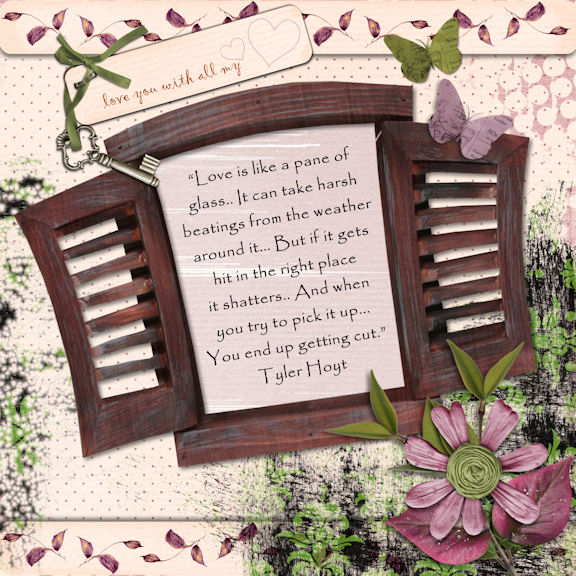 love you with all my
"Love is like a pane of
glass.. It can take harsh
beatings from the weather
around it... But if it gets
hit in the right place
it shatters.. And when
you try to pick it up...
You end up getting cut."
Tyler Hoyt